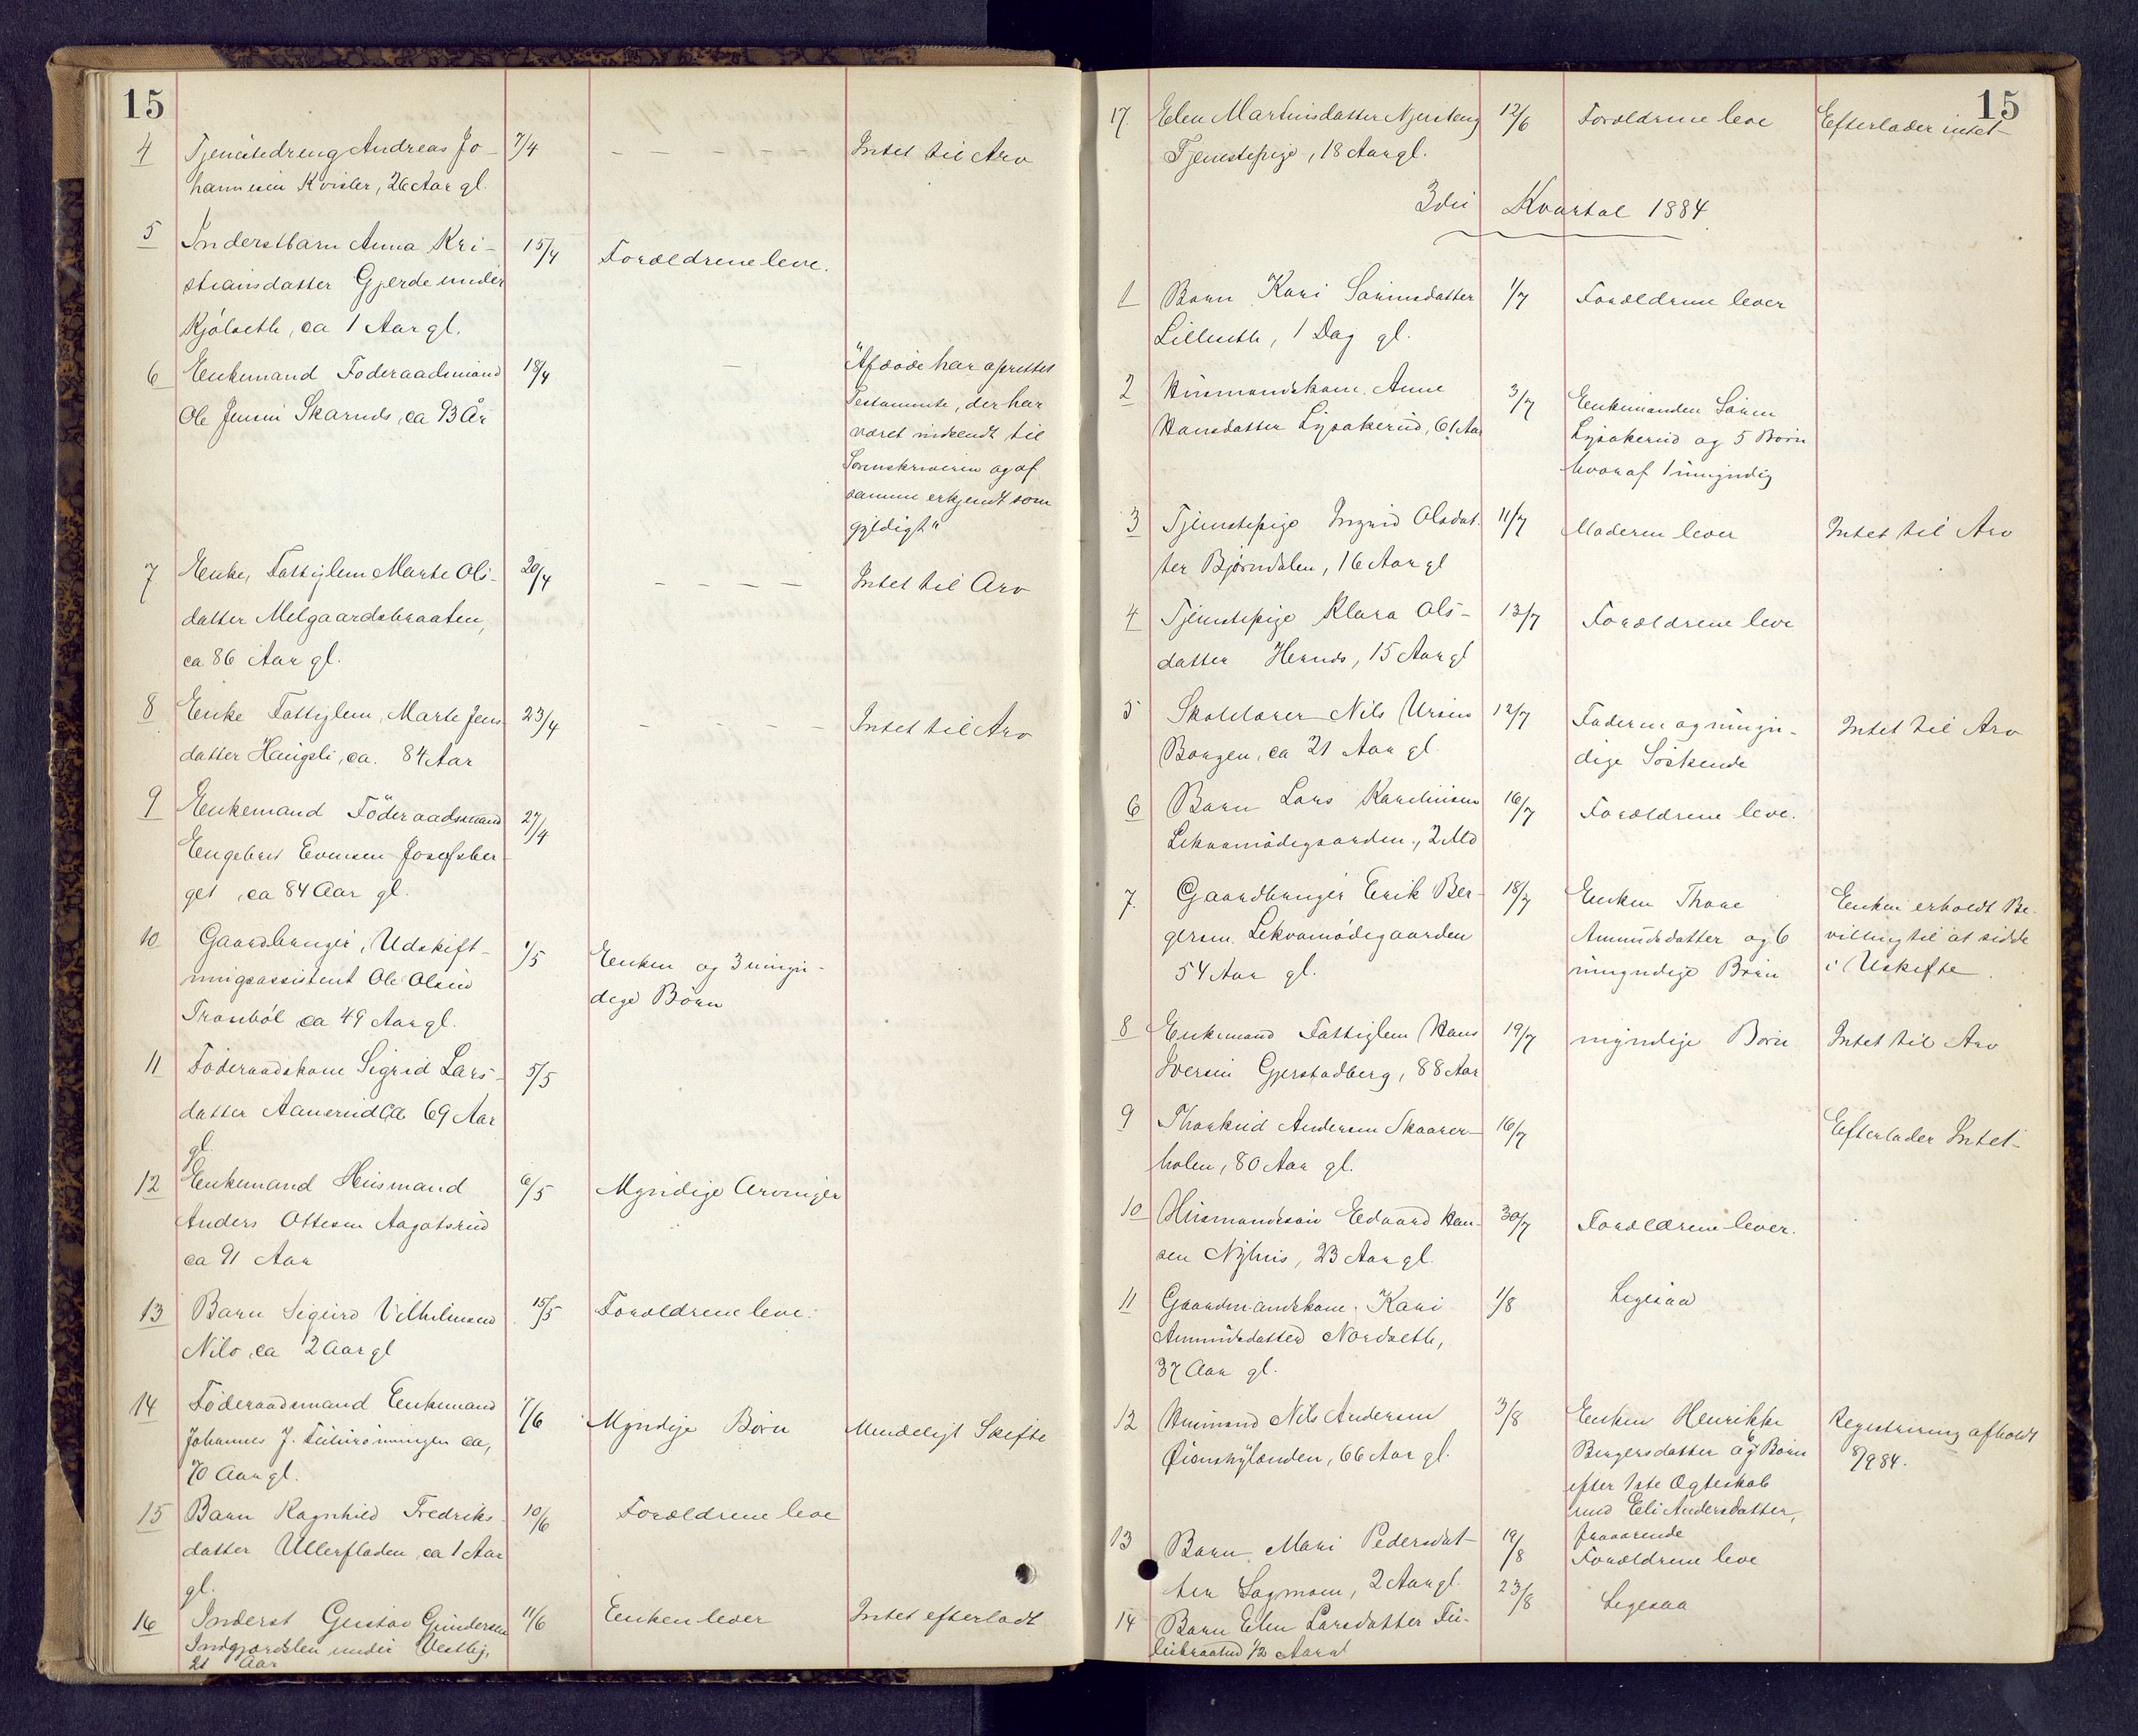 15
4 Tjenestedreng Andreas Jo- 7/4 - - - - - Intet til Arv
hannesen Kvisler, 26 Aar gl.
5 Inderstbarn Anna Kri- 15/4 Forældrene leve.
stiansdatter Gjerde under
Kjølseth, ca 1 Aar gl.
6 Enkemand Føderaadsmand 18/4 - "Afdøde har oprettet
Ole Jensen Skarnds, ca 93 År Testamente, der har
været indsendt til
Sorenskriveren og af
samme erkjendt som
gyldigt"
7 Enke, Fattiglem Marte Ols- 20/4 - - - - Intet til Arv
datter Melgaardsbraaten,
ca 86 Aar gl.
8 Enke Fattiglem, Marte Jens- 23/4 - - - - Intet til Arv
datter Haugsli, ca. 84 Aar
9 Enkemand Föderaadsmand 27/4
Engebret Evensen Josefsber-
get, ca 84 Aar gl.
10 Gaardbruger, Udskift- 1/5 Enken og 3 umyn-
ningsassistent Ole Olsen dige Börn
Trønbøl ca 49 Aar gl.
11 Föderaadskone Sigrid Lars- 5/5
datter Aanerud ca 69 Aar
gl.
12 Enkemand Husmand 6/5 Myndige Arvinger
Anders Ottesen Aagotsrud
ca 91 Aar
13 Barn Sigurd Vilhelmsen 15/5 Forældrene leve.
Nilo, ca 2 Aar gl
14 Föderaadsmand Enkemand 7/6 Myndige Børn Mindeligt Skifte
Johannes J. ca,
70 Aar gl.
15 Barn Ragnhild Fredriks- 10/6 Forældrene leve
datter Ullerfladen, ca 1 Aar
gl.
16 Inderst Gustav Gundersen 11/6 Enken lever Intet efterladt
Indgjærdslen under Vestby,
21 Aar
15
17. Elen Martinsdatter 12/6 Forældrene leve Efterlader intet
Tjenestepige, 18 Aar gl.
3die Kvartal 1884
1 Barn Kari Sørensdatter 1/7 Forældrene lever
Lilleseth, 1 Dag gl.
2 Husmandskone Anne 3/7 Enkemanden Søren
Hansdatter Lysakerud, 61 Aar Lysakerud og 5 Børn
hvoraf 1 umyndig
3 Tjenestepige Ingrid Olsdat- 11/7 Moderen lever Intet til Arv
ter Bjørndalen, 16 Aar gl
4 Tjenestepige Klara Ols- 13/7 Forældrene leve
datter Hernds, 15 Aar gl
5 Skolelærer Nils Ursin 12/7 Faderen og umyn- Intet til Arv
Borgen, ca 21 Aar gl. dige Söskende
6 Barn Lars Karelinsen 16/7 Forældrene leve.
Lekvamödegaarden, 2 Md
7. Gaardbruger Erik Ber- 18/7 Enken Thore Enken erholdt Be-
gersen Lekvamödegaarden Amundsdatter og 6 villing til at sidde
54 Aar gl. umyndige Börn i Uskifte.
8 Enkemand Fattiglem Hans 19/7 myndige Børn Intet til Arv
Iversen Gjerstadberg, 88 Aar
9 Thorkild Andersen Skaarer- 16/7 Efterlader Intet-
holen, 80 Aar gl.
10 Husmandssøn Edvard Han- 30/7 Forældrene lever.
sen Nyhus, 23 Aar gl.
11 Gaardmandskone Kari 1/8 Ligesaa
Amundsdatter Nordseth,
37 Aar gl.
12 Husmand Nils Andersen 3/8 Enken Henrikke Registrering afholdt
66 Aar gl. Bergersdatter og Børn 8/9 84.
efter 1ste Ægteskab
med Eli Andersdatter,
fraværende
13 Barn Mari Pedersdat- 19/8 Forældrene leve
ter Sagmoen, 2 Aar gl.
14 Barn Elen Larsdatter 23/8 Ligesaa
1/2 Aar gl